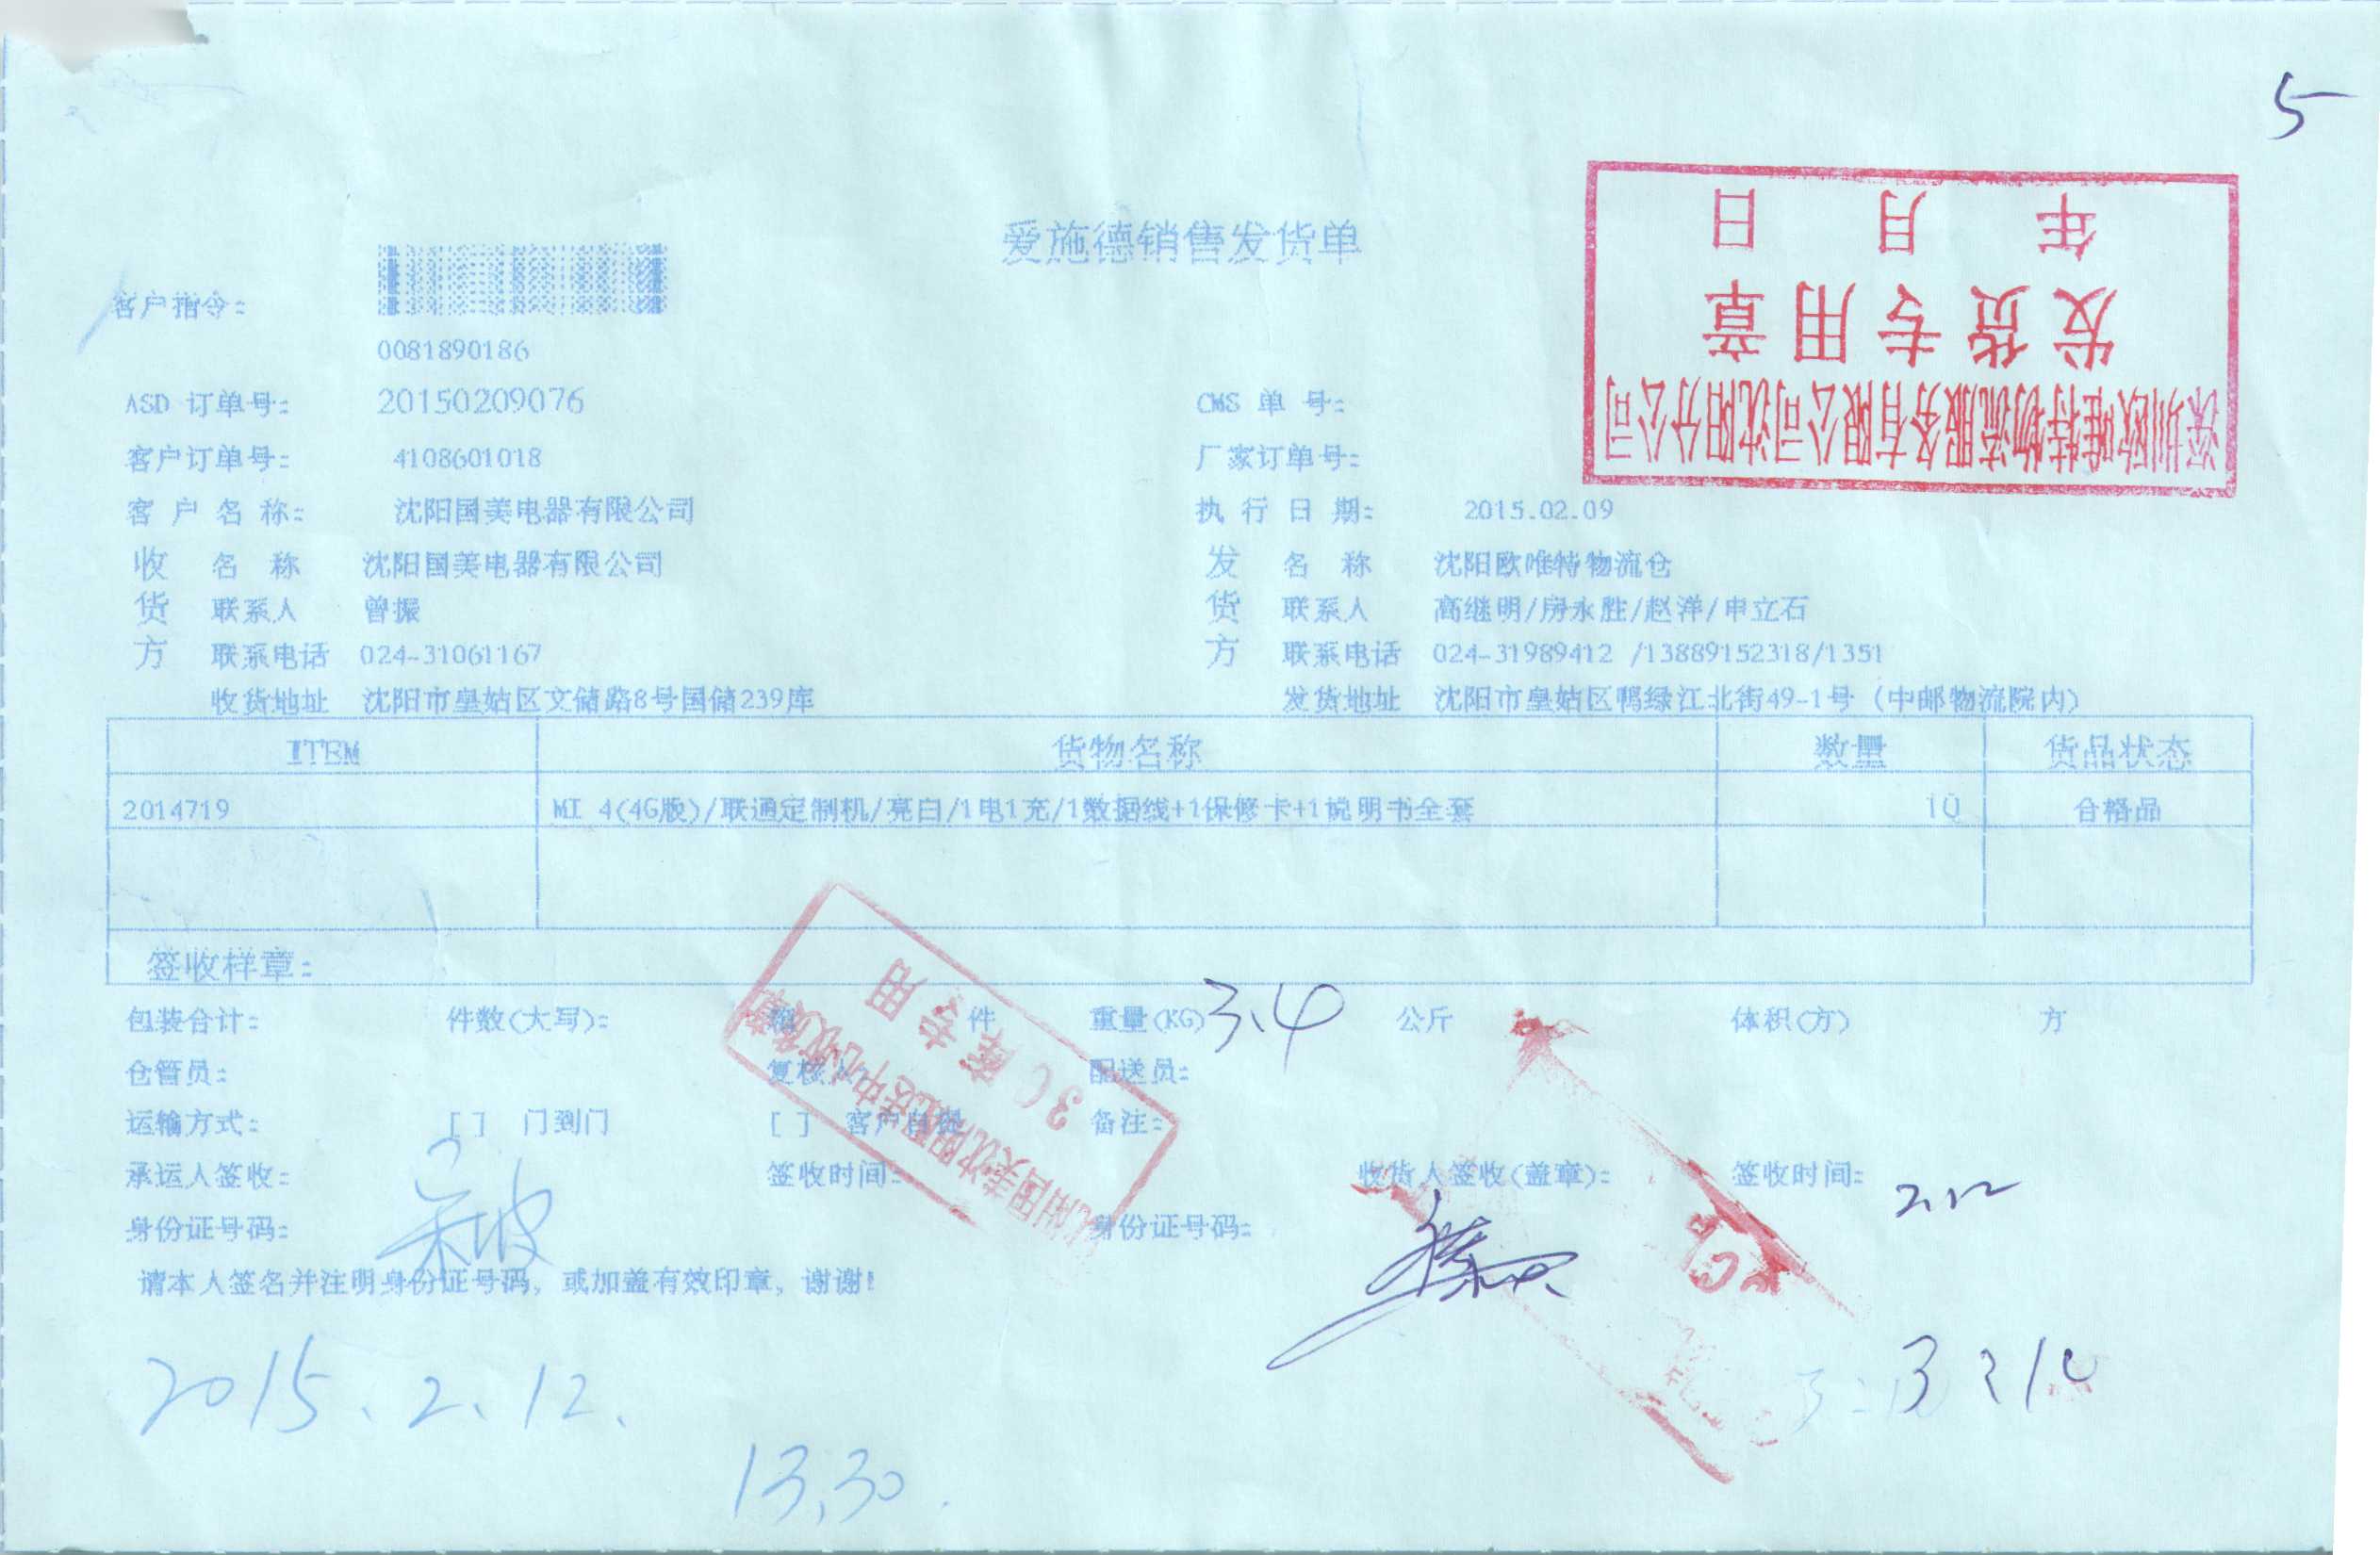 5
爱施德销售发货单
年 月 日
发货专用章
深圳欧唯特物流服务有限公司沈阳分公司
客户指令:
0081890186
ASD 订单号: 20150209076 CMS 单 号:
客户订单号: 4108601018 厂家订单号:
客 户 名 称: 沈阳国美电器有限公司 执 行 日 期: 2015.02.09
收 名 称 沈阳国美电器有限公司 发 名 称 沈阳欧唯特物流仓
货 联系人 曾振 货 联系人 高继明/房永胜/赵洋/申立石
方 联系电话 024-31061167 方 联系电话 024-31989412 /13889152318/1351
收货地址 沈阳市皇姑区文储路8号国储239库 发货地址 沈阳市皇姑区鸭绿江北街49-1号 (中邮物流院内)
ITEM 货物名称 数量 货品状态
2014719 MI 4(4G版)/联通定制机/亮白/1电1充/1数据线+1保修卡+1说明书全套 10 合格品
签收样章:
包装合计: 件数(大写): 箱 件 重量(KG) 3.4 公斤 体积(方) 方
仓管员: 复核人 配送员:
运输方式: [ ] 门到门 [ ] 客户自提 备注:
承运人签收: 签收时间: 收货人签收(盖章): 签收时间: 2.12
身份证号码: 身份证号码:
国美沈阳配送中心收货章
3C库专用
请本人签名并注明身份证号码, 或加盖有效印章, 谢谢!
2015.2.12.
13.30.